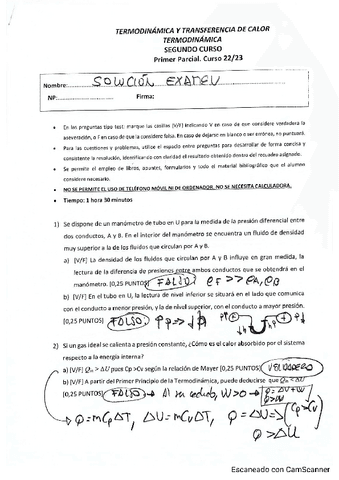 TERMODINÁMICA Y TRANSFERENCIA DE CALOR
TERMODINÁMICA
SEGUNDO CURSO
Primer Parcial. Curso 22/23
Nombre: SOLUCIÓN EXAMEN
NP: Firma:
• En las preguntas tipo test: marque las casillas (V/F) indicando V en caso de que considere verdadera la
aseveración, o F en caso de que la considere falsa. En caso de dejarse en blanco o ser errónea, no puntuará.
• Para las cuestiones y problemas, utilice el espacio entre preguntas para desarrollar de forma concisa y
consistente la resolución, identificando con claridad el resultado obtenido dentro del recuadro asignado.
• Se permite el empleo de libros, apuntes, formularios y todo el material bibliográfico que el alumno
considere necesario.
• NO SE PERMITE EL USO DE TELÉFONO MÓVIL NI DE ORDENADOR. NO SE NECESITA CALCULADORA.
• Tiempo: 1 hora 30 minutos
1) Se dispone de un manómetro de tubo en U para la medida de la presión diferencial entre
dos conductos, A y B. En el interior del manómetro se encuentra un fluido de densidad
muy superior a la de los fluidos que circulan por A y B.
a) [V/F] La densidad de los fluidos que circulan por A y B influye en gran medida, la
lectura de la diferencia de presiones entre ambos conductos que se obtendrá en el
manómetro. (0,25 PUNTOS) FALSO ρF >> ρA, ρB
b) [V/F] En el tubo en U, la lectura de nivel inferior se situará en el lado que comunica
con el conducto a menor presión, y la de nivel superior, con el conducto a mayor presión.
(0,25 PUNTOS) FALSO
2) Si un gas ideal se calienta a presión constante, ¿Cómo es el calor absorbido por el sistema
respecto a la energía interna?
a) [V/F] Qin > ΔU pues Cp >Cv según la relación de Mayer (0,25 PUNTOS) VERDADERO
b) [V/F] A partir del Primer Principio de la Termodinámica, puede deducirse que Qin < ΔU
(0,25 PUNTOS) FALSO → Al ser W>0 → Q = ΔU + W
Q>W
→ Q=mCpΔT, ΔU=mCvΔT, Q = ΔU ⇒ Cp>Cv
Q > ΔU
Escaneado con CamScanner